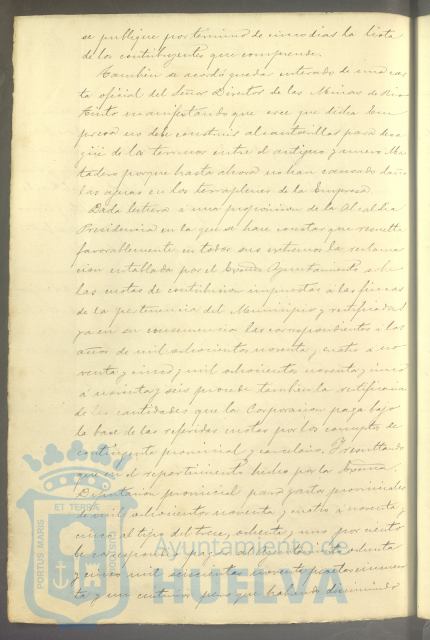 se publique por termino de cinco dias la lista
de los contribuyentes que comprende.
Tambien se acordó quedar enterado de una car
ta oficial del Señor Director de las Minas de Rio
Tinto manifestando que cree que dicha Em
presa no debe construir alcantarillas para desa
güe de los terrenos entre el antiguo y nuevo Ma
tadero porque hasta ahora no han causado daño
las aguas en los terraplenes de la Empresa.
Dada lectura á una proposicion de la Alcaldia
Presidencia en la que se hace constar que resuelta
favorablemente en todos sus extremos la reclama
cion entablada por el Ayuntamiento sobre
las cuotas de contribucion impuestas á las fincas
de la pertenencia del Municipio y rectificadas
ya en su consecuencia las correspondientes á los
años de mil ochocientos noventa y cuatro á no
venta y cinco y mil ochocientos noventa y cinco
á noventa y seis procede tambien la rectificacion
de las cantidades que la Corporacion paga bajo
la base de las referidas cuotas por los conceptos de
contingente provincial y carcelario. Y resultando
que en el repartimiento hecho por la Excma.
Diputacion provincial para gastos provinciales
de mil ochocientos noventa y cuatro á noventa y
cinco al tipo del trece, ochenta y uno por ciento
le correspondió pagar
y cinco mil noventa pesetas cincuen
ta y un centimos pero que habiendo disminuido
ET TERRÆ
PORTUS MARIS
CUSTODIA
Ayuntamiento de
HUELVA